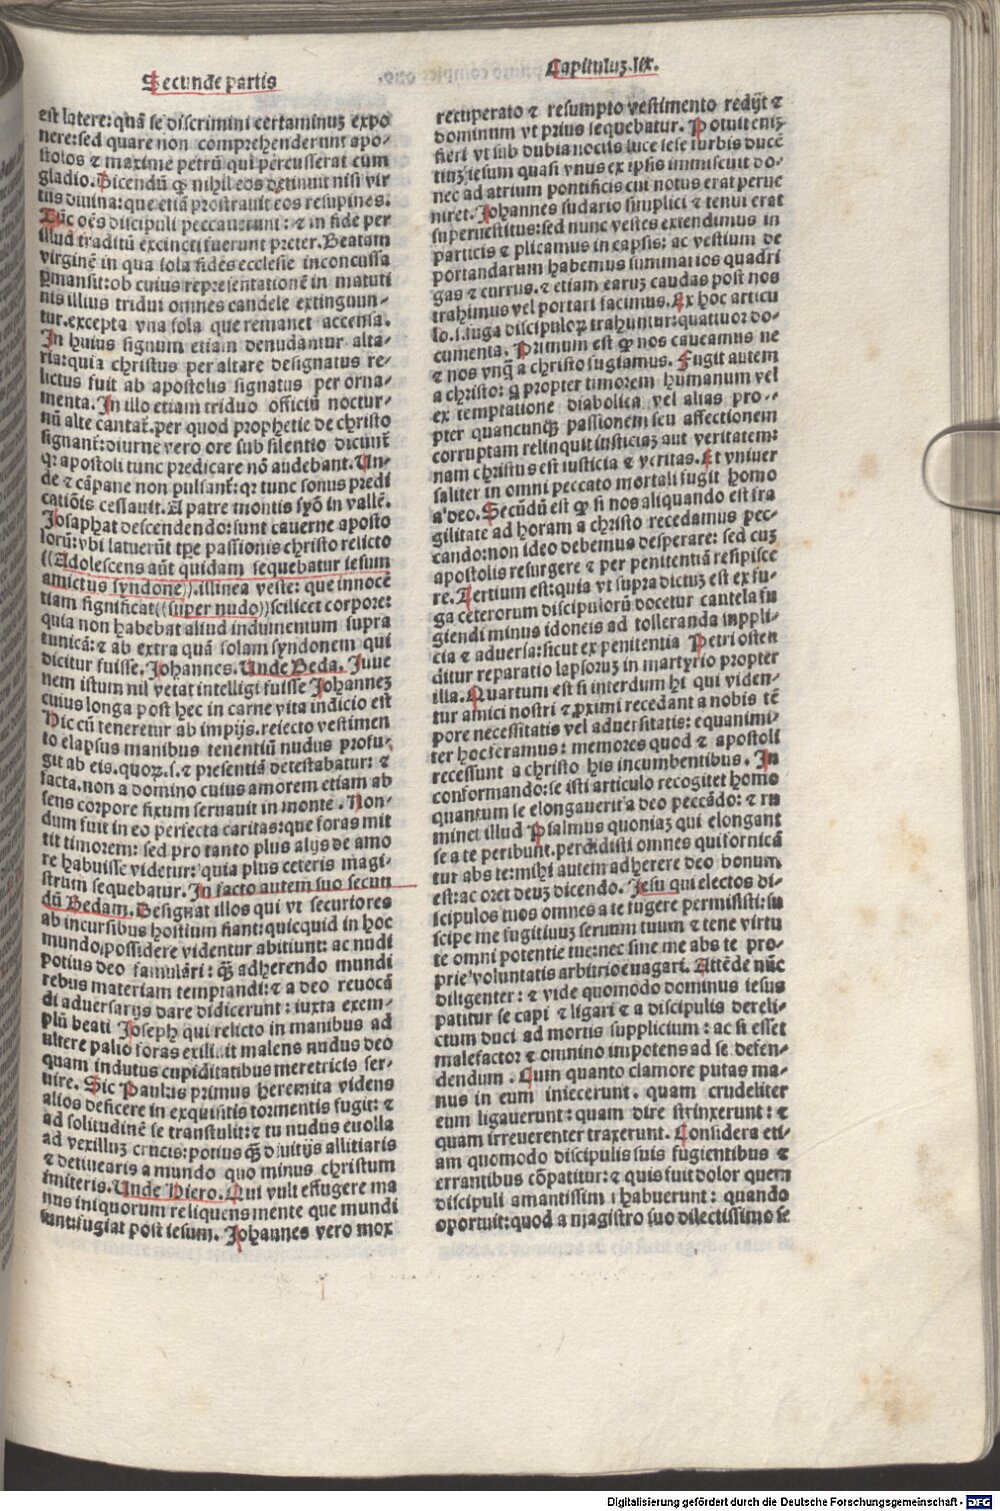 Secunde partis
Capituluʒ .lix.
est latere: quā se discrimini certaminuʒ expo
nere: sed quare non comprehenderunt apo-
stolos ⁊ maxime petrū qui percusserat cum
gladio. Dicendū ꝙ nihil eos detinuit nisi vir
tus diuina: que etiā prostrauit eos resupines.
Tūc oēs discipuli peccauerunt: ⁊ in fide per
illud traditū excincti fuerunt preter. Beatam
virginē in qua sola fides ecclesie inconcussa
ꝑmansit: ob cuius representationē in matuti
nis illius tridui omnes candele extinguun-
tur. excepta vna sola que remanet accensa.
In huius signum etiam denudantur alta-
ria: quia christus per altare designatus re-
lictus fuit ab apostolis signatus per orna-
menta. In illo etiam triduo officiū noctur-
nū alte cantat̄. per quod prophetie de christo
signant̄: diurne vero ore sub silentio dicunt̄
qꝛ apostoli tunc predicare nō audebant. Un-
de ⁊ cāpane non pulsant̄: qꝛ tunc sonus predi
catiōis cessauit. A patre montis syō in vallē.
Josaphat descendendo: sunt cauerne aposto
lorū: vbi latuerūt tꝑe passionis christo relicto
((Adolescens aūt quidam sequebatur iesum
amictus syndone)). i. linea veste: que innocē
tiam significat ((super nudo)) scilicet corpore:
quia non habebat aliud indumentum supra
tunicā: ⁊ ab extra quā solam syndonem qui
dicitur fuisse. Johannes. Unde Beda. Juue
nem istum nil vetat intelligi fuisse Johanneʒ
cuius longa post hec in carne vita indicio est
Hic cū teneretur ab impijs. reiecto vestimen
to elapsus manibus tenentiū nudus profu-
git ab eis. quoꝝ. s. ⁊ presentiā detestabatur: ⁊
facta. non a domino cuius amorem etiam ab
sens corpore fixum seruauit in monte. Non-
dum fuit in eo perfecta caritas: que foras mit
tit timorem: sed pro tanto plus alijs de amo
re habuisse videtur: quia plus ceteris magi-
strum sequebatur. In facto autem suo secun
dū Bedam. Designat illos qui vt securiores
ab incursibus hostium fiant: quicquid in hoc
mundo possidere videntur abitiunt: ac nudi
potius deo famulari: ꝙ̄ adherendo mundi
rebus materiam temptandi: ⁊ a deo reuocā
di aduersarijs dare didicerunt: iuxta exem-
plū beati Joseph qui relicto in manibus ad
ultere palio foras exiliuit malens nudus deo
quam indutus cupiditatibus meretricis ser-
uire. Sic Paulus primus heremita videns
alios deficere in exquisitis tormentis fugit: ⁊
ad solitudinē se transtulit: ⁊ tu nudus euolla
ad vexilluʒ crucis: potius ꝙ̄ diuitijs allitiaris
⁊ detinearis a mundo quo minus christum
imiteris. Unde Hiero. Qui vult effugere ma
nus iniquorum reliquens mente que mundi
sunt: fugiat post iesum. Johannes vero mox
recuperato ⁊ resumpto vestimento redijt ⁊
dominum vt prius sequebatur. Potuit eniʒ
fieri vt sub dubia noctis luce iese turbis ducē
tinʒ iesum quasi vnus ex ipsis immiscuit do-
nec ad atrium pontificis cui notus erat perue
niret. Johannes sudario simplici ⁊ tenui erat
superuestitus: sed nunc vestes extendimus in
particis ⁊ plicamus in capsis: ac vestium de
portandarum habemus summarios quadri
gas ⁊ currus. ⁊ etiam earuʒ caudas post nos
trahimus vel portari facimus. Ex hoc articu
lo. i. fuga discipuloꝝ trahuntur: quattuor do-
cumenta. Primum est ꝙ nos caueamus ne
⁊ nos vnq̄ a christo fugiamus. Fugit autem
a christo: q̇ propter timorem humanum vel
ex temptatione diabolica vel alias pro-
pter quancunqʒ passionem seu affectionem
corruptam relinquit iusticiaʒ aut veritatem:
nam christus est iusticia ⁊ veritas. Et vniuer
saliter in omni peccato mortali fugit homo
a deo. Secūdū est ꝙ si nos aliquando est fra
gilitate ad horam a christo recedamus pec-
cando: non ideo debemus desperare: sed cuʒ
apostolis resurgere ⁊ per penitentiā resipisce
re. Tertium est: quia vt supra dictuʒ est ex fu-
ga ceterorum discipulorū docetur cautela fu
giendi minus idoneis ad tolleranda supplì-
cia ⁊ aduersa: sicut ex penitentia Petri osten
ditur reparatio lapsoruʒ in martyrio propter
illa. Quartum est si interdum hi qui viden-
tur amici nostri ⁊ ꝓximi recedant a nobis tē
pore necessitatis vel aduersitatis: equanimi-
ter hoc feramus: memores quod ⁊ apostoli
recessunt a christo his incumbentibus. In
conformando: se isti articulo recogitet homo
quantum se elongauerit a deo peccādo: ⁊ ru
minet illud Psalmus quoniaʒ qui elongant
se a te peribunt. perdidisti omnes qui fornicā
tur abs te: mihi autem adherere deo bonum
est: ac oret deuʒ dicendo. Jesu qui electos di-
scipulos tuos omnes a te fugere permisisti: su
scipe me fugitiuuʒ seruum tuum ⁊ tene virtu
te omni potentie tue: nec sine me abs te pro-
prie voluntatis arbitrio euagari. Attēde nūc
diligenter: ⁊ vide quomodo dominus iesus
patitur se capi ⁊ ligari ⁊ a discipulis dereli-
ctum duci ad mortis supplicium: ac si esset
malefactor ⁊ omnino impotens ad se defen-
dendum. Cum quanto clamore putas ma-
nus in eum iniecerunt. quam crudeliter
eum ligauerunt: quam dire strinxerunt: ⁊
quam irreuerenter traxerunt. Considera eti-
am quomodo discipulis suis fugientibus ⁊
errantibus cōpatitur: ⁊ quis fuit dolor quem
discipuli amantissimi habuerunt: quando
oportuit: quod a magistro suo dilectissimo se
Digitalisierung gefördert durch die Deutsche Forschungsgemeinschaft - DFG